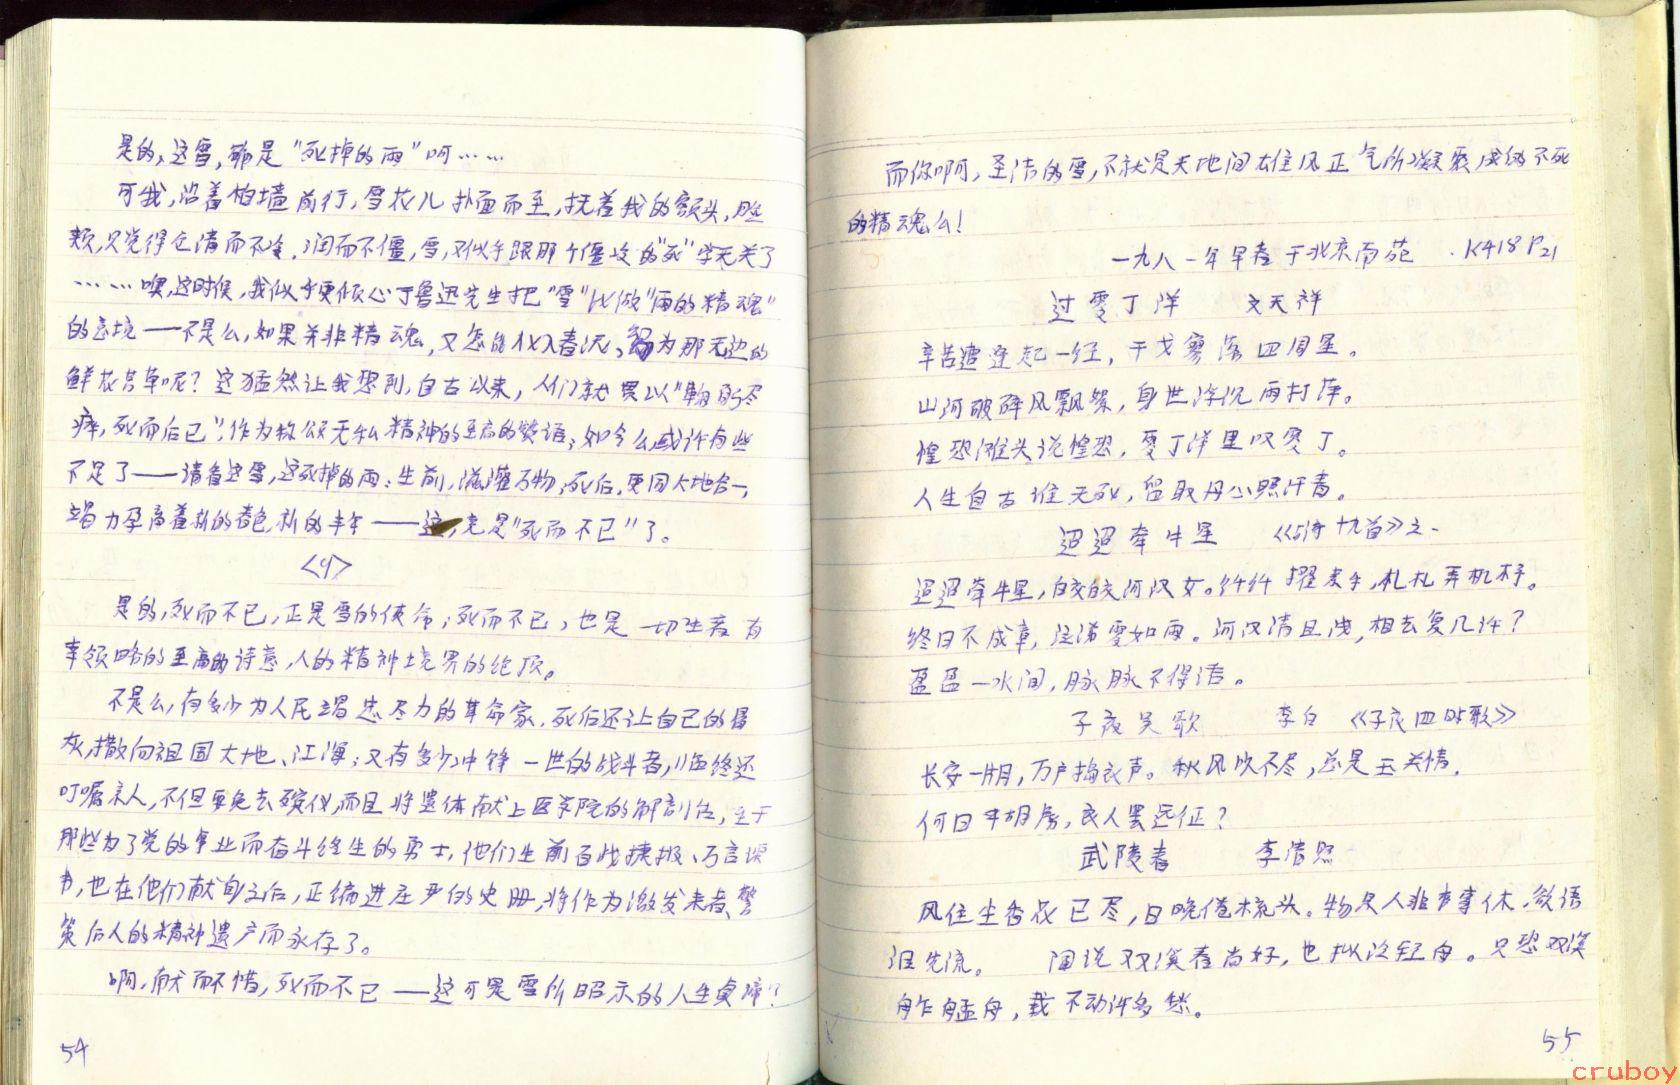 是的,这雪,确是“死掉的雨”呵……
可我,沿着柏墙前行,雪花儿扑面而至,抚着我的额头,脸
颊,只觉得它清而不冷,润而不僵,雪,又似乎跟那个僵皮的“死”字无关了
……噢,这时候,我似乎更倾心于鲁迅先生把“雪”比做“雨的精魂”
的意境——不是么,如果并非精魂,又怎能化入春泥、绣为那无边的
鲜花芳草呢?这猛然让我想到,自古以来,人们就累以“鞠躬尽
瘁,死而后已”,作为称颂无私精神的至高的赞语;如今么,或许有些
不足了——请看这雪,这死掉的雨:生前,滋灌万物,死后,更同大地合一,
竭力孕育着新的春色,新的丰年——这,竟是“死而不已”了。
<九>
是的,死而不已,正是雪的使命;死而不已,也是一切生者有
幸领略的至高的诗意,人的精神境界的绝顶。
不是么,有多少为人民竭忠尽力的革命家,死后还让自己的骨
灰,撒向祖国大地、江海;又有多少冲锋一世的战斗者,临终还
叮嘱亲人,不但要免去殡仪,而且将遗体献上医学院的解剖台,至于
那些为了党的事业而奋斗终生的勇士,他们生前百战捷报、万言谏
书,也在他们献身之后,正编进庄严的史册,将作为激发来者、警
策后人的精神遗产而永存了。
啊,献而不惜,死而不已——这可是雪所昭示的人生真谛?
54
而你啊,圣洁的雪,不就是天地间雄风正气所凝聚,成的不死
的精魂么!
一九八一年早春于北京南苑 .K418 P21
过零丁洋 文天祥
辛苦遭逢起一经,干戈寥落四周星。
山河破碎风飘絮,身世浮沉雨打萍。
惶恐滩头说惶恐,零丁洋里叹零丁。
人生自古谁无死,留取丹心照汗青。
迢迢牵牛星 《古诗十九首》之一
迢迢牵牛星,皎皎河汉女。纤纤擢素手,札札弄机杼。
终日不成章,泣涕零如雨。河汉清且浅,相去复几许?
盈盈一水间,脉脉不得语。
子夜吴歌 李白 《子夜四时歌》
长安一片月,万户捣衣声。秋风吹不尽,总是玉关情,
何日平胡虏,良人罢远征?
武陵春 李清照
风住尘香花已尽,日晚倦梳头。物是人非事事休,欲语
泪先流。 闻说双溪春尚好,也拟泛轻舟。只恐双溪
舴艋舟,载不动许多愁。
55
cruboy